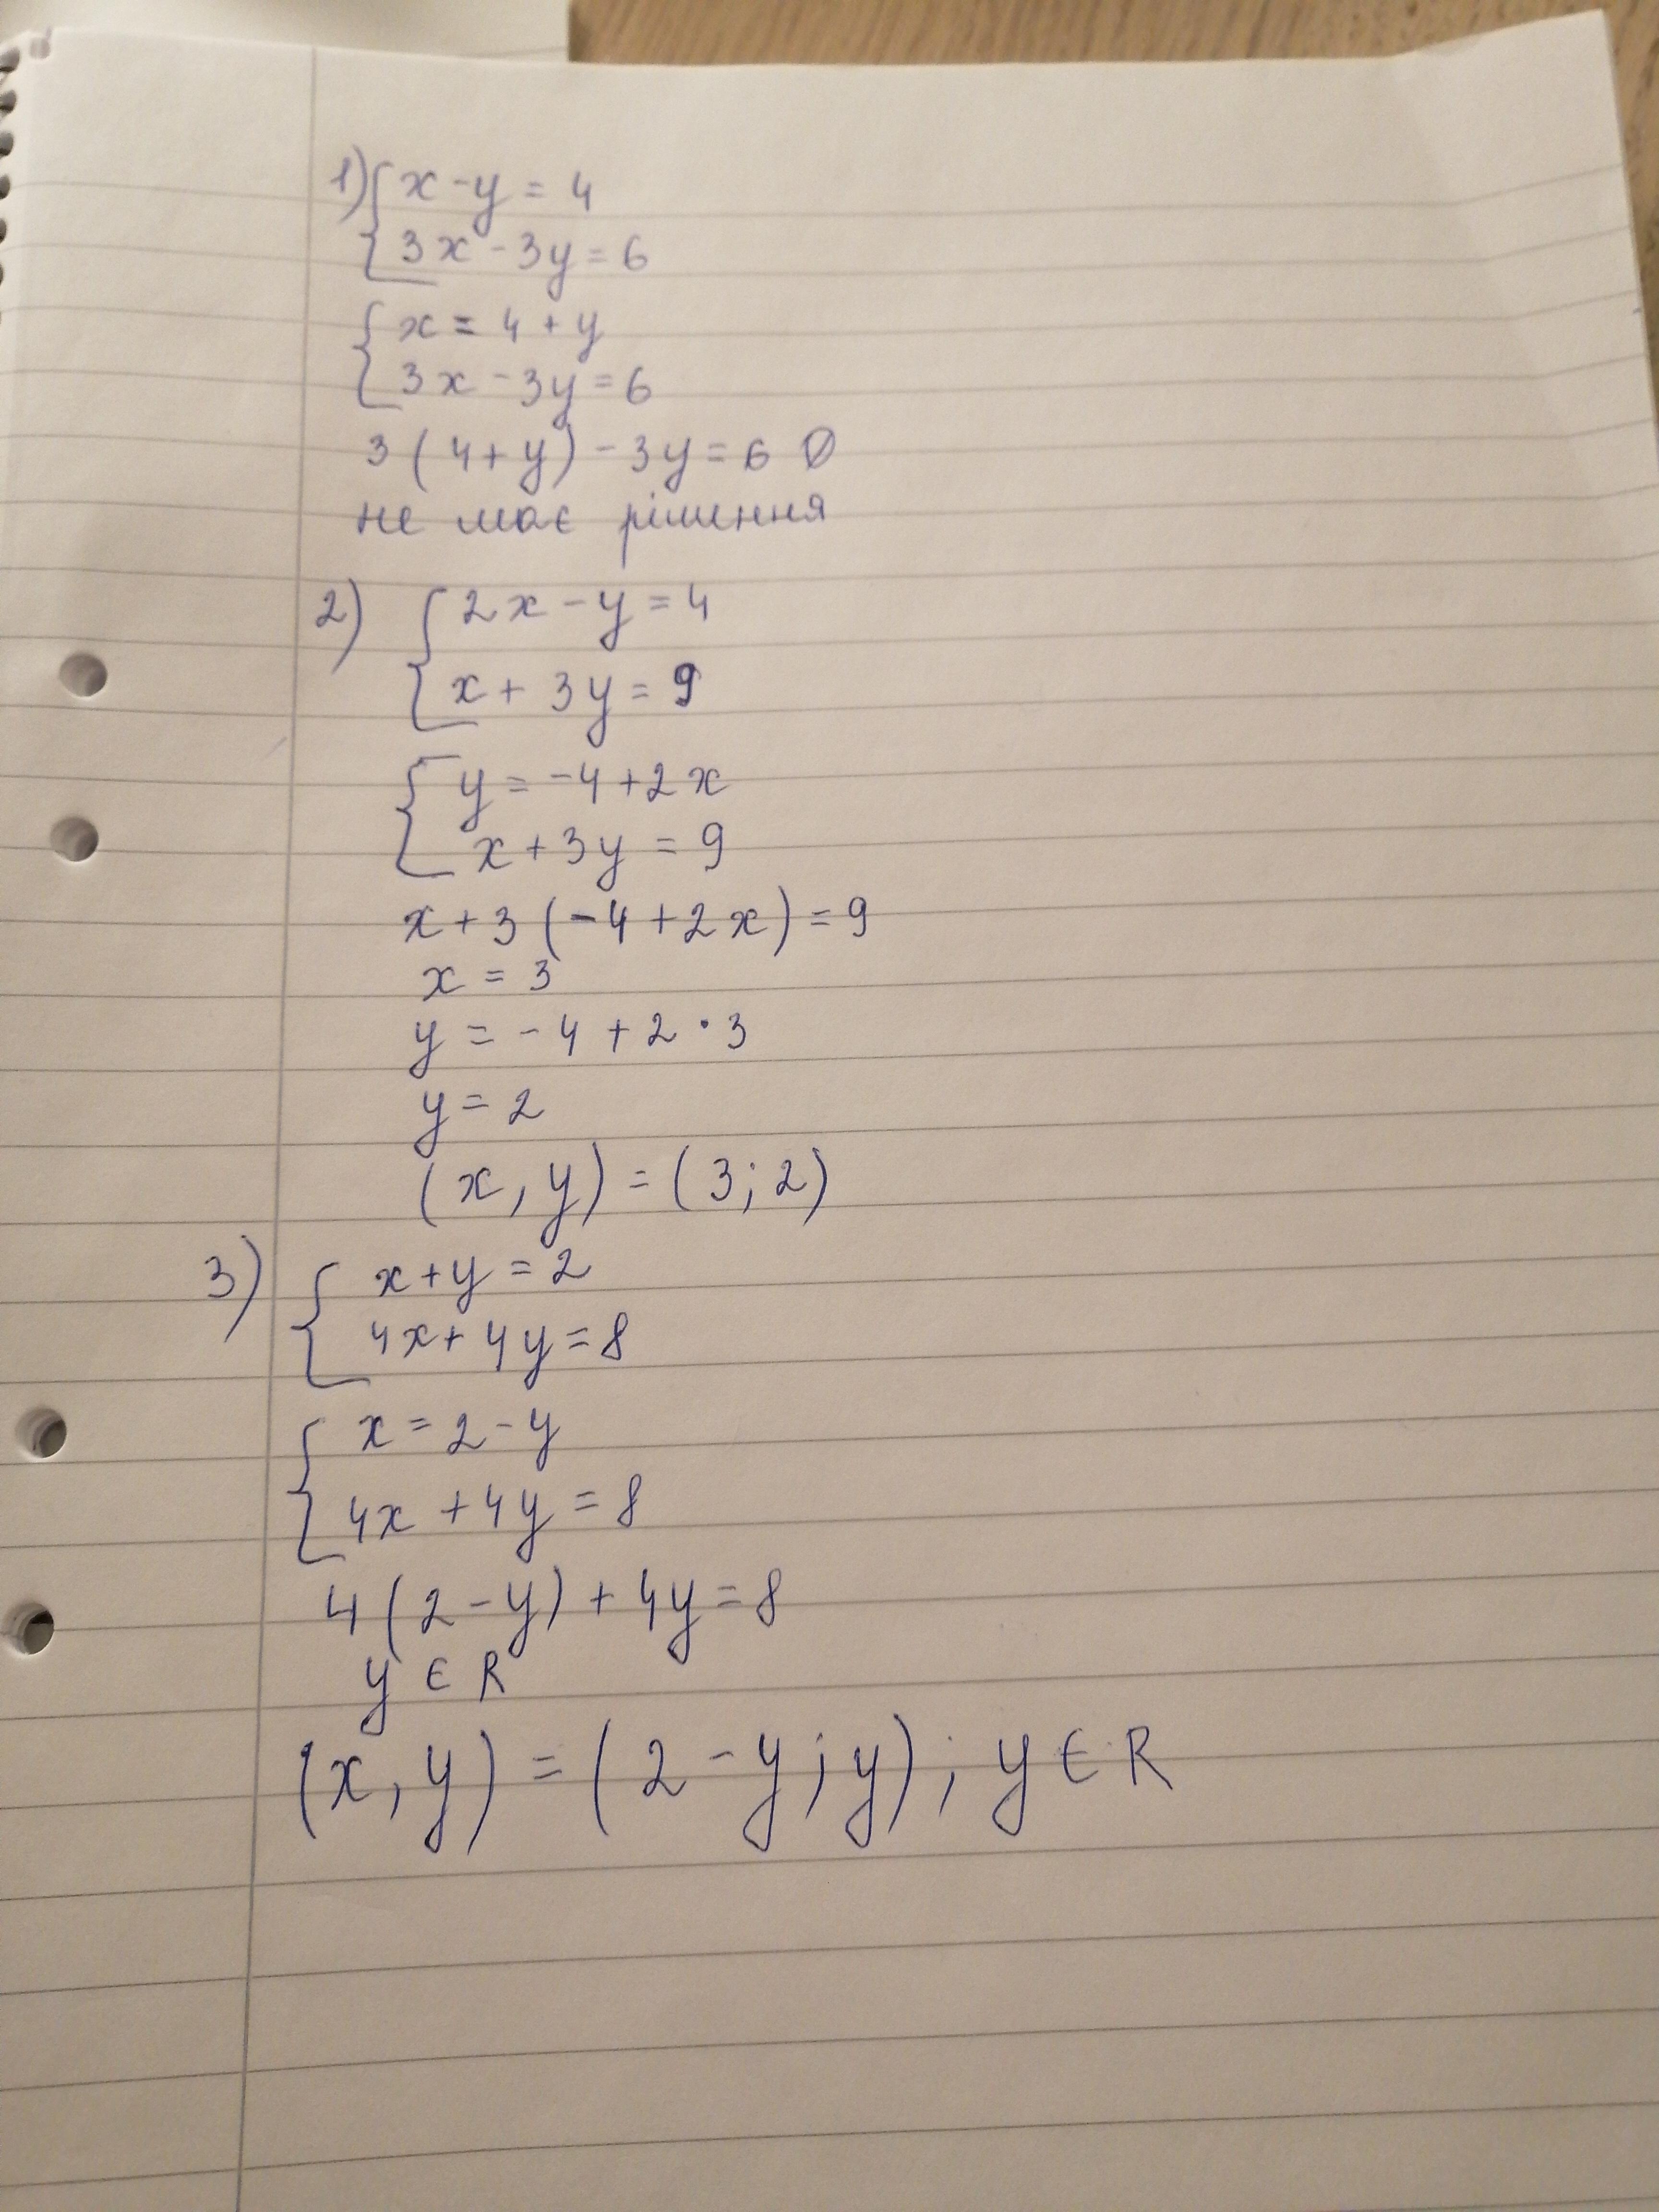 1) { x - y = 4
3x - 3y = 6
{ x = 4 + y
3x - 3y = 6
3 ( 4 + y ) - 3y = 6 ∅
не має рішення
2) { 2x - y = 4
x + 3y = 9
{ y = -4 + 2x
x + 3y = 9
x + 3 ( -4 + 2x ) = 9
x = 3
y = -4 + 2 · 3
y = 2
(x, y) = (3; 2)
3) { x + y = 2
4x + 4y = 8
{ x = 2 - y
4x + 4y = 8
4 ( 2 - y ) + 4y = 8
y ∈ R
(x, y) = (2 - y; y); y ∈ R